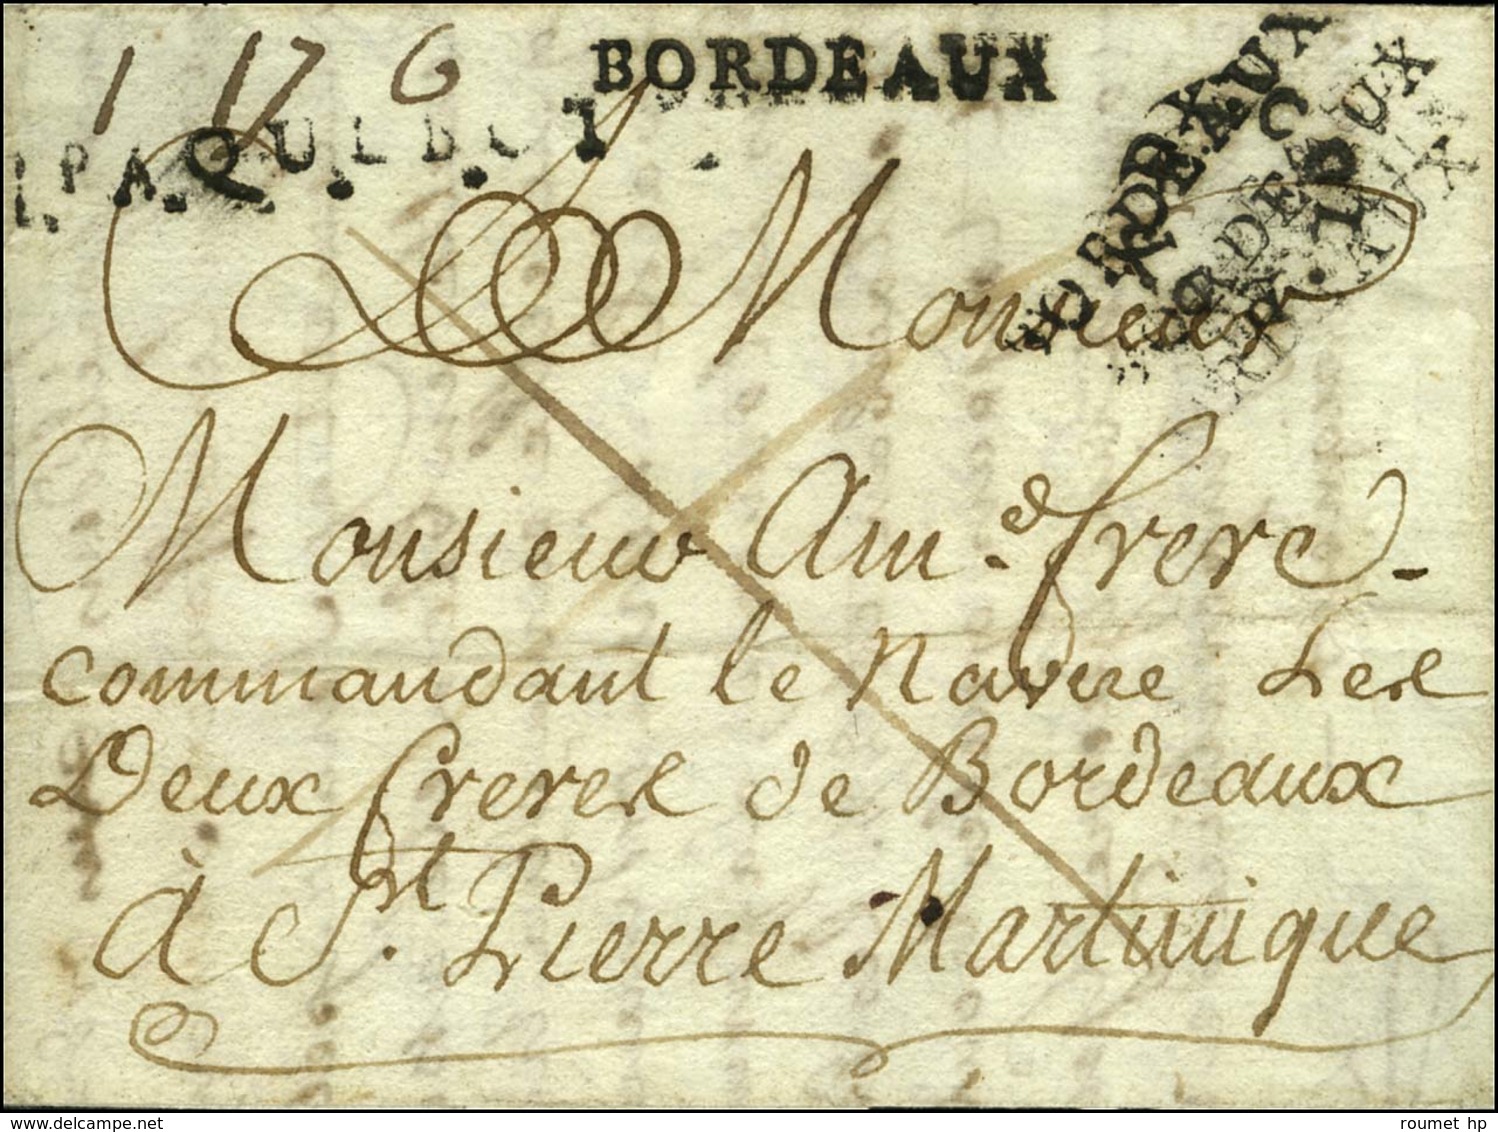 1 17 6
BORDEAUX
BORDEAUX
PAQUEBOT
Monsieur
Monsieur Am.d frere
commandant le Navire Les
Deux freres de Bordeaux
à St. Pierre Martinique
delcampe.net
roumet hp